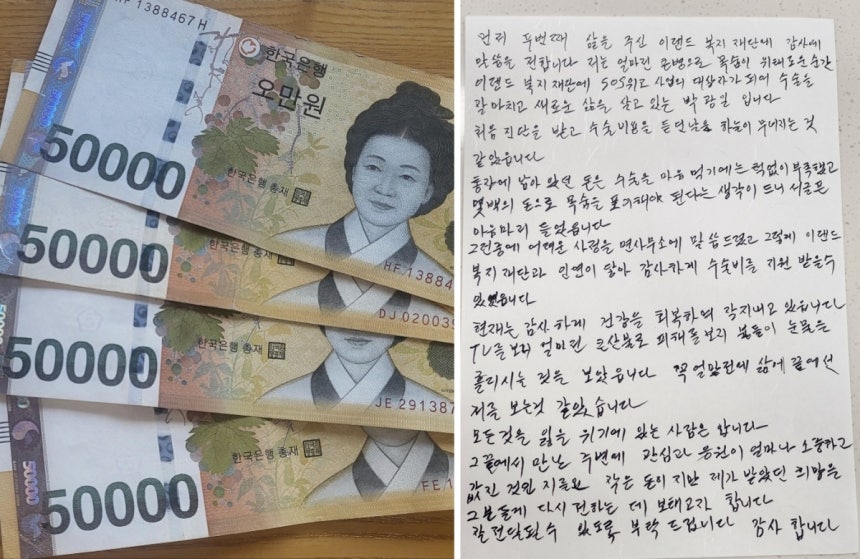 HF 1388467 H
한국은행
오만원
50000
한국은행 총재
HF 1388
50000
한국은행 총재
DJ 020039
50000
한국은행 총재
JE 291387
50000
한국은행 총재
FE 1
50000
먼저 두번째 삶을 주신 이랜드 복지 재단에 감사에
말씀을 전합니다 저는 얼마전 큰병으로 목숨이 위태로운순간
이랜드 복지 재단에 SOS위고 사업의 대상자가 되어 수술을
잘 마치고 새로운 삶을 살고 있는 박광일 입니다
처음 진단을 받고 수술비용을 듣던날을 하늘이 무너지는 것
같았읍니다
통장에 남아 있던 돈은 수술을 마음 먹기에는 턱없이 부족했고
몇백의 돈으로 목숨을 포기해야 된다는 생각이 드니 서글픈
마음마저 들었읍니다
그런중에 어려운 사정을 면사무소에 말씀드렸고 그렇게 이랜드
복지 재단과 인연이 닿아 감사하게 수술비를 지원 받을수
있었읍니다
현재는 감사하게 건강을 회복하여 잘지내고 있읍니다
TV를 보니 얼마전 큰산불로 피해를보신 분들이 눈물을
흘리시는 것을 보았읍니다 꼭 얼마전에 삶에 끝에선
저를 보는것 같았습니다
모든것을 잃을 위기에 있는 사람은 압니다
그끝에서 만난 주변에 관심과 응원이 얼마나 소중하고
값진 것인지를요 작은 돈이지만 제가 받았던 희망을
그분들께 다시 전하는 데 보태고자 합니다
잘 전달될수 있도록 부탁 드립니다 감사 합니다